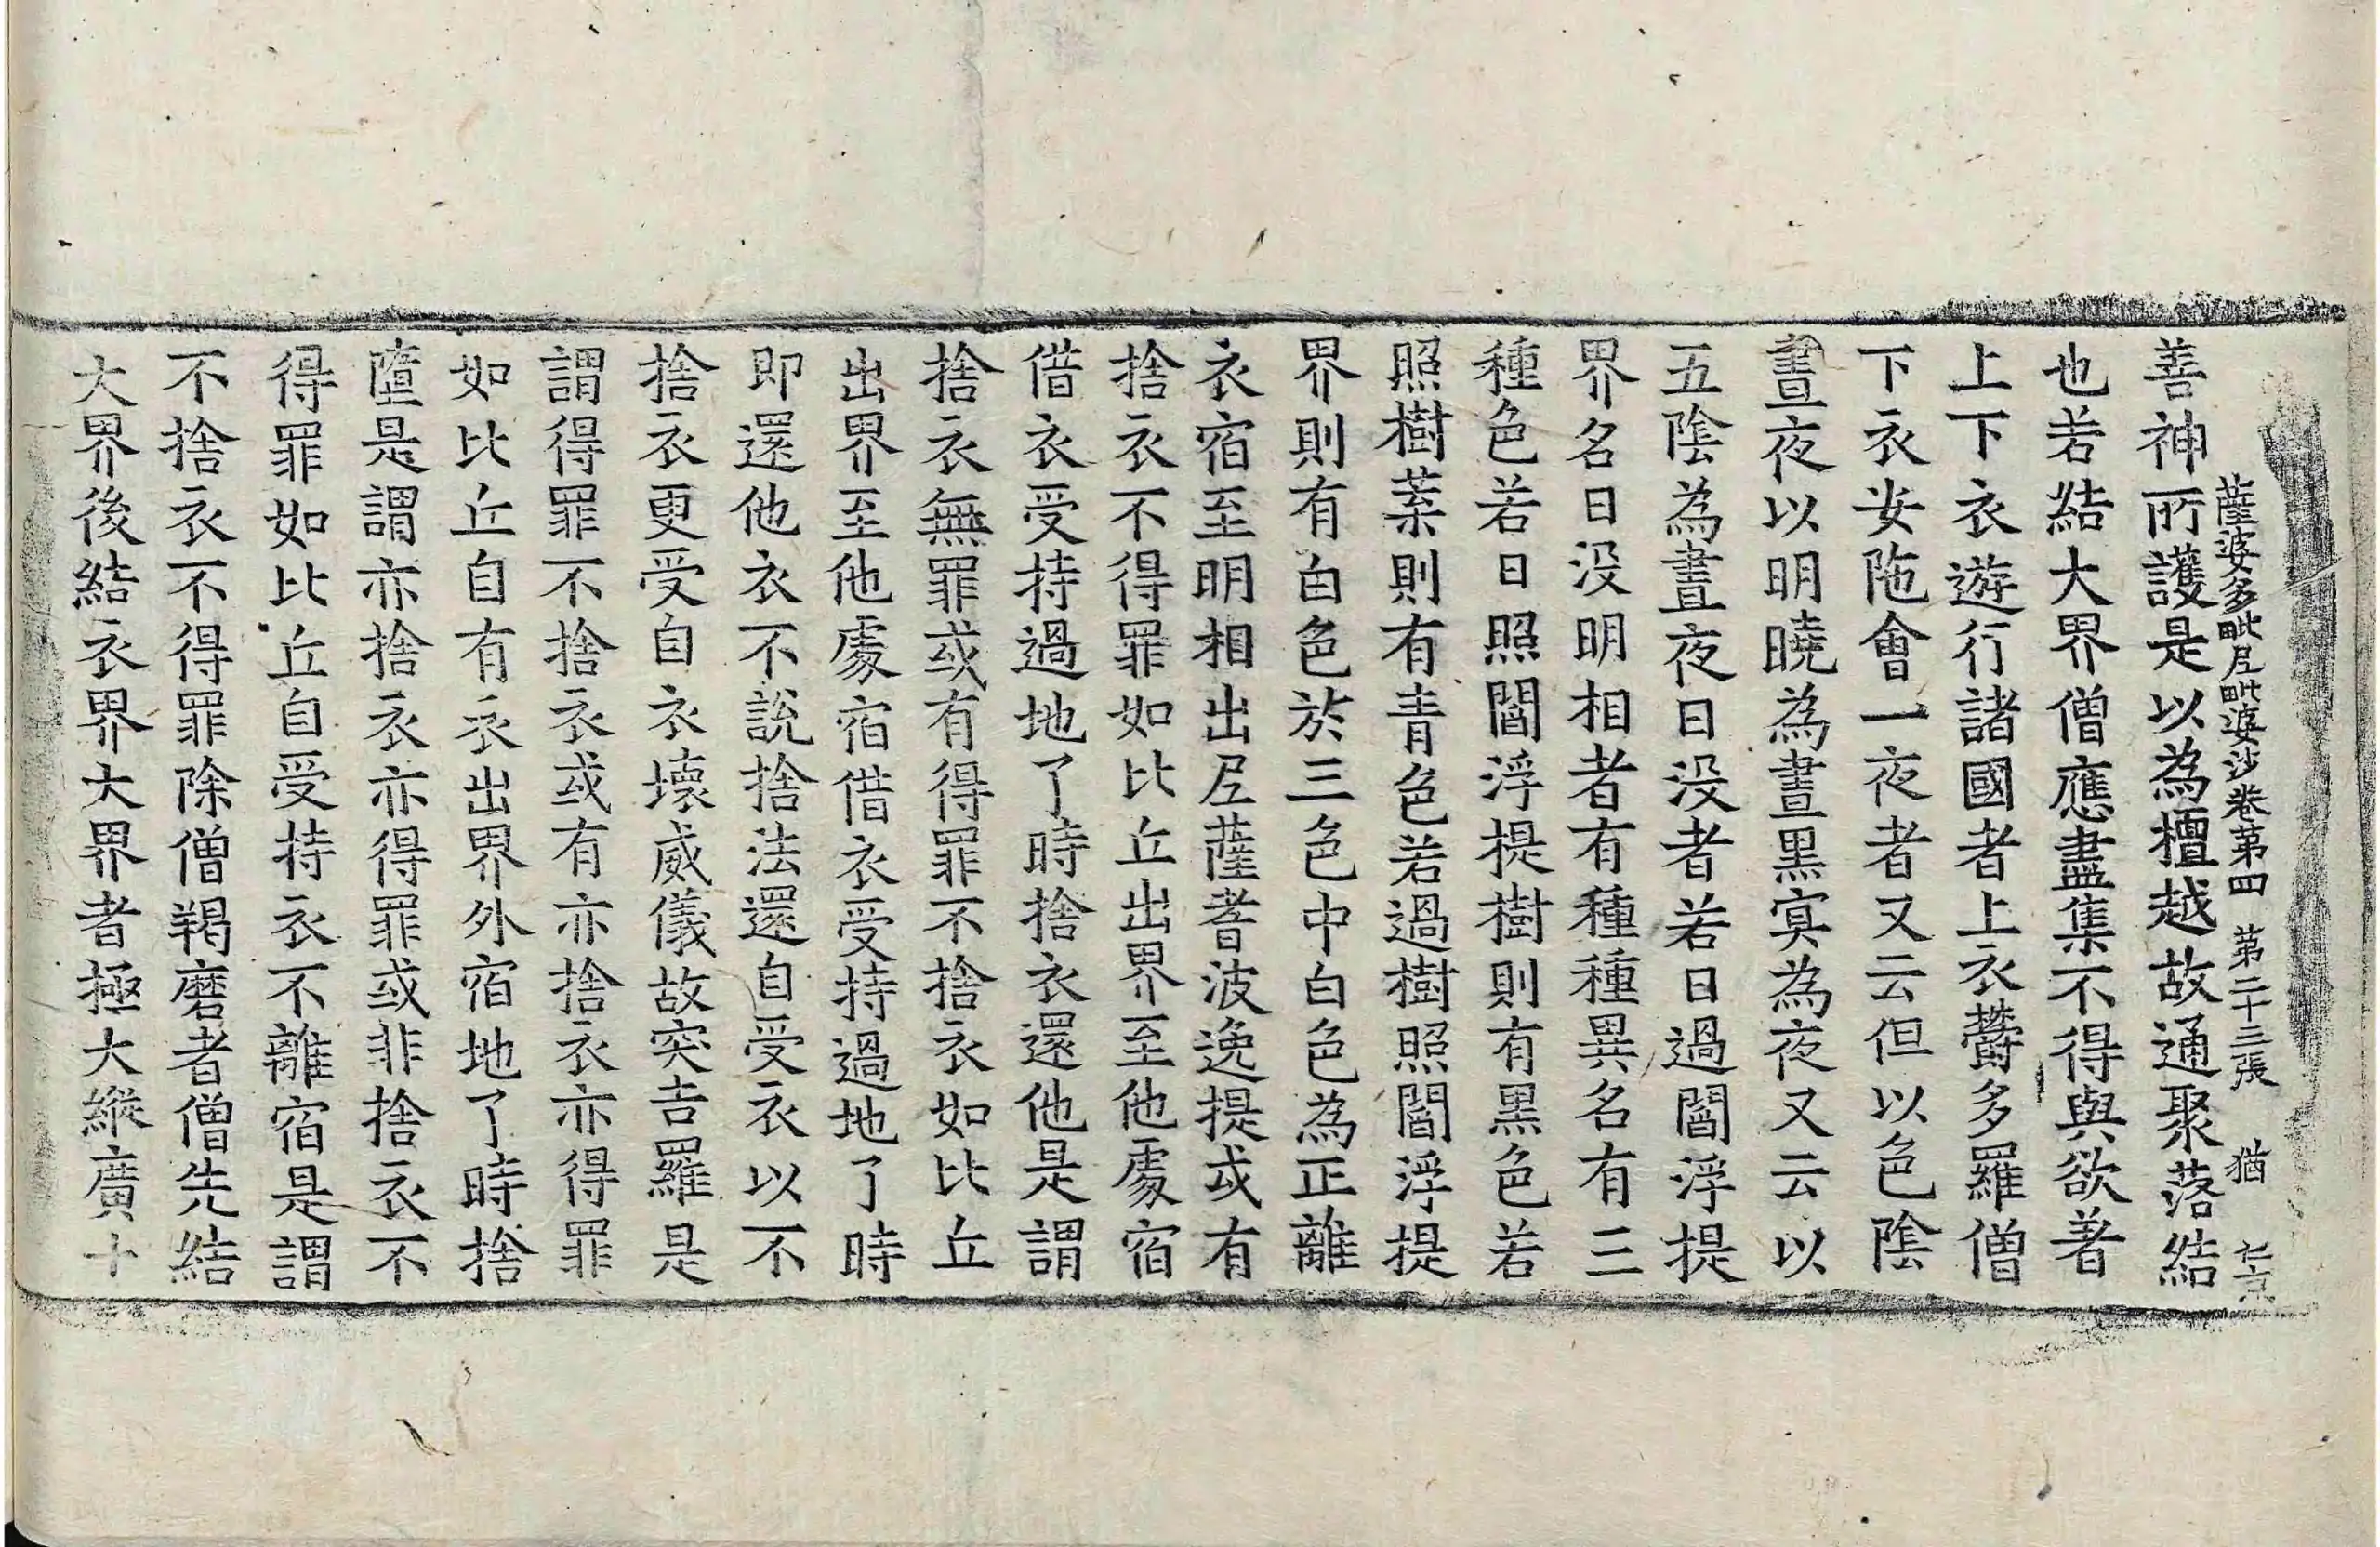 薩婆多毗尼毗婆沙卷第四 第二十三張 猶
善神所護是以為檀越故通聚落結
也若結大界僧應盡集不得與欲著
上下衣遊行諸國者上衣欝多羅僧
下衣安陁會一夜者又云但以色陰
晝夜以明曉為晝黒㝠為夜又云以
五陰為晝夜日没者若日過閻浮提
界名日没明相者有種種異名有三
種色若日照閻浮提樹則有黒色若
照樹葉則有青色若過樹照閻浮提
界則有白色於三色中白色為正離
衣宿至明相出尼薩耆波逸提或有
捨衣不得罪如比丘出界至他處宿
借衣受持過地了時捨衣還他是謂
捨衣無罪或有得罪不捨衣如比丘
出界至他處宿借衣受持過地了時
即還他衣不說捨法還自受衣以不
捨衣更受自衣壞威儀故突吉羅是
謂得罪不捨衣或有亦捨衣亦得罪
如比丘自有衣出界外宿地了時捨
墮是謂亦捨衣亦得罪或非捨衣不
得罪如比丘自受持衣不離宿是謂
不捨衣不得罪除僧羯磨者僧先結
大界後結衣界大界者極大縱廣十